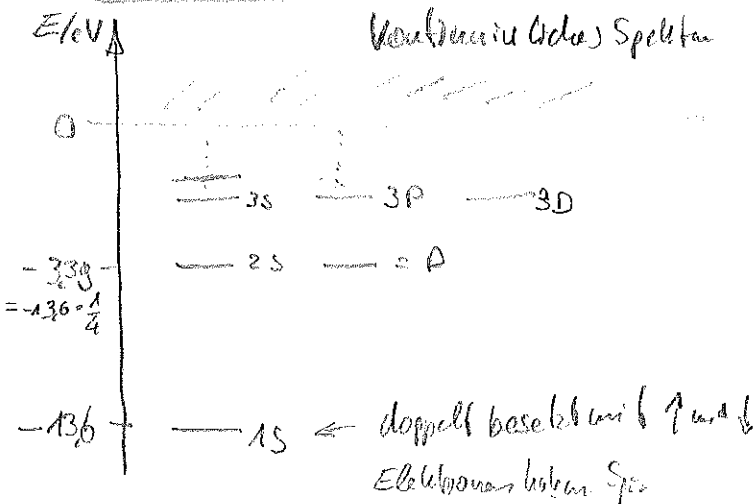 E/eV Kontinuierliches Spektrum
0
3S 3P 3D
-3,39 2S 2P
= -13,6 · 1/4
-13,6 1S ← doppelt besetzt mit ↑ und ↓
Elektronen haben Spin